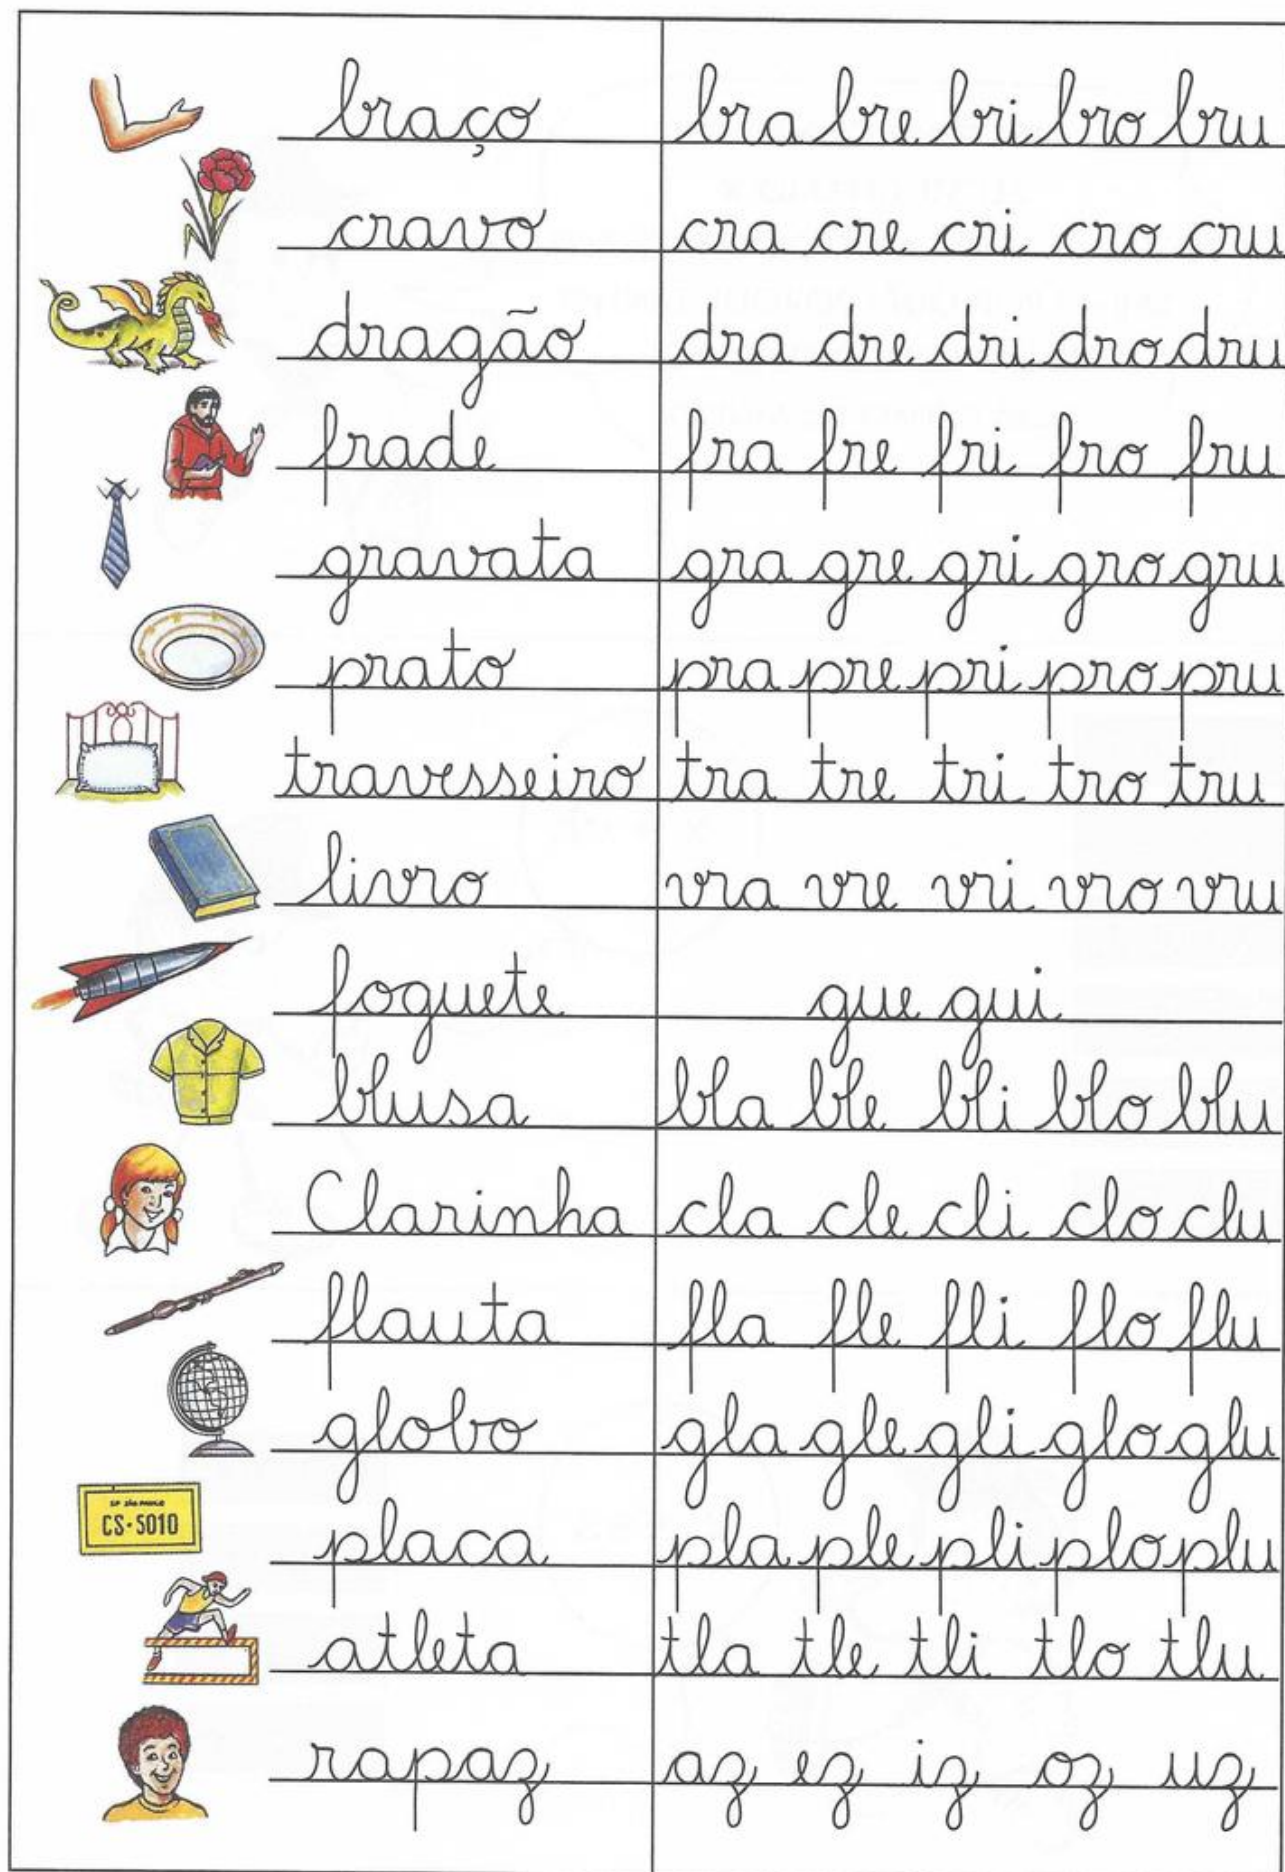 braço bra bre bri bro bru
cravo cra cre cri cro cru
dragão dra dre dri dro dru
frade fra fre fri fro fru
gravata gra gre gri gro gru
prato pra pre pri pro pru
travesseiro tra tre tri tro tru
livro vra vre vri vro vru
foguete gue gui
blusa bla ble bli blo blu
Clarinha cla cle cli clo clu
flauta fla fle fli flo flu
globo gla gle gli glo glu
SP SÃO PAULO
CS·5010
placa pla ple pli plo plu
atleta tla tle tli tlo tlu
rapaz az ez iz oz uz